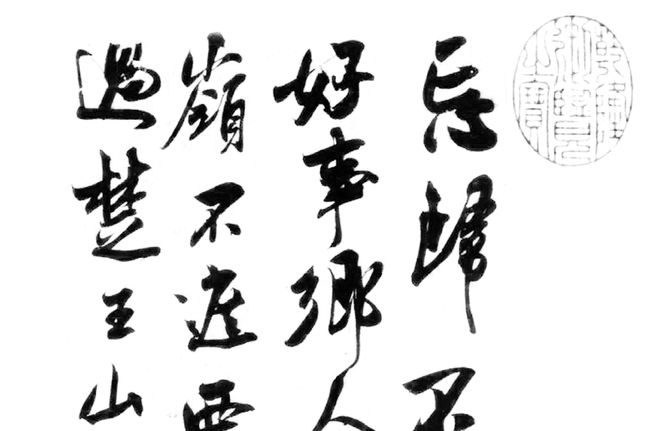 乾隆御覽之寶
忘歸不
好事鄉人
嶺不遮西
過楚王山